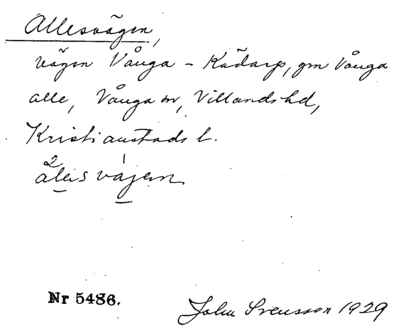 Allesvägen,
vägen Vånga - Kädarp, gm Vånga
alle, Vånga sn, Villands hd,
Kristianstads l.
2
ales vajen
Nr 5486.
John Svensson 1929